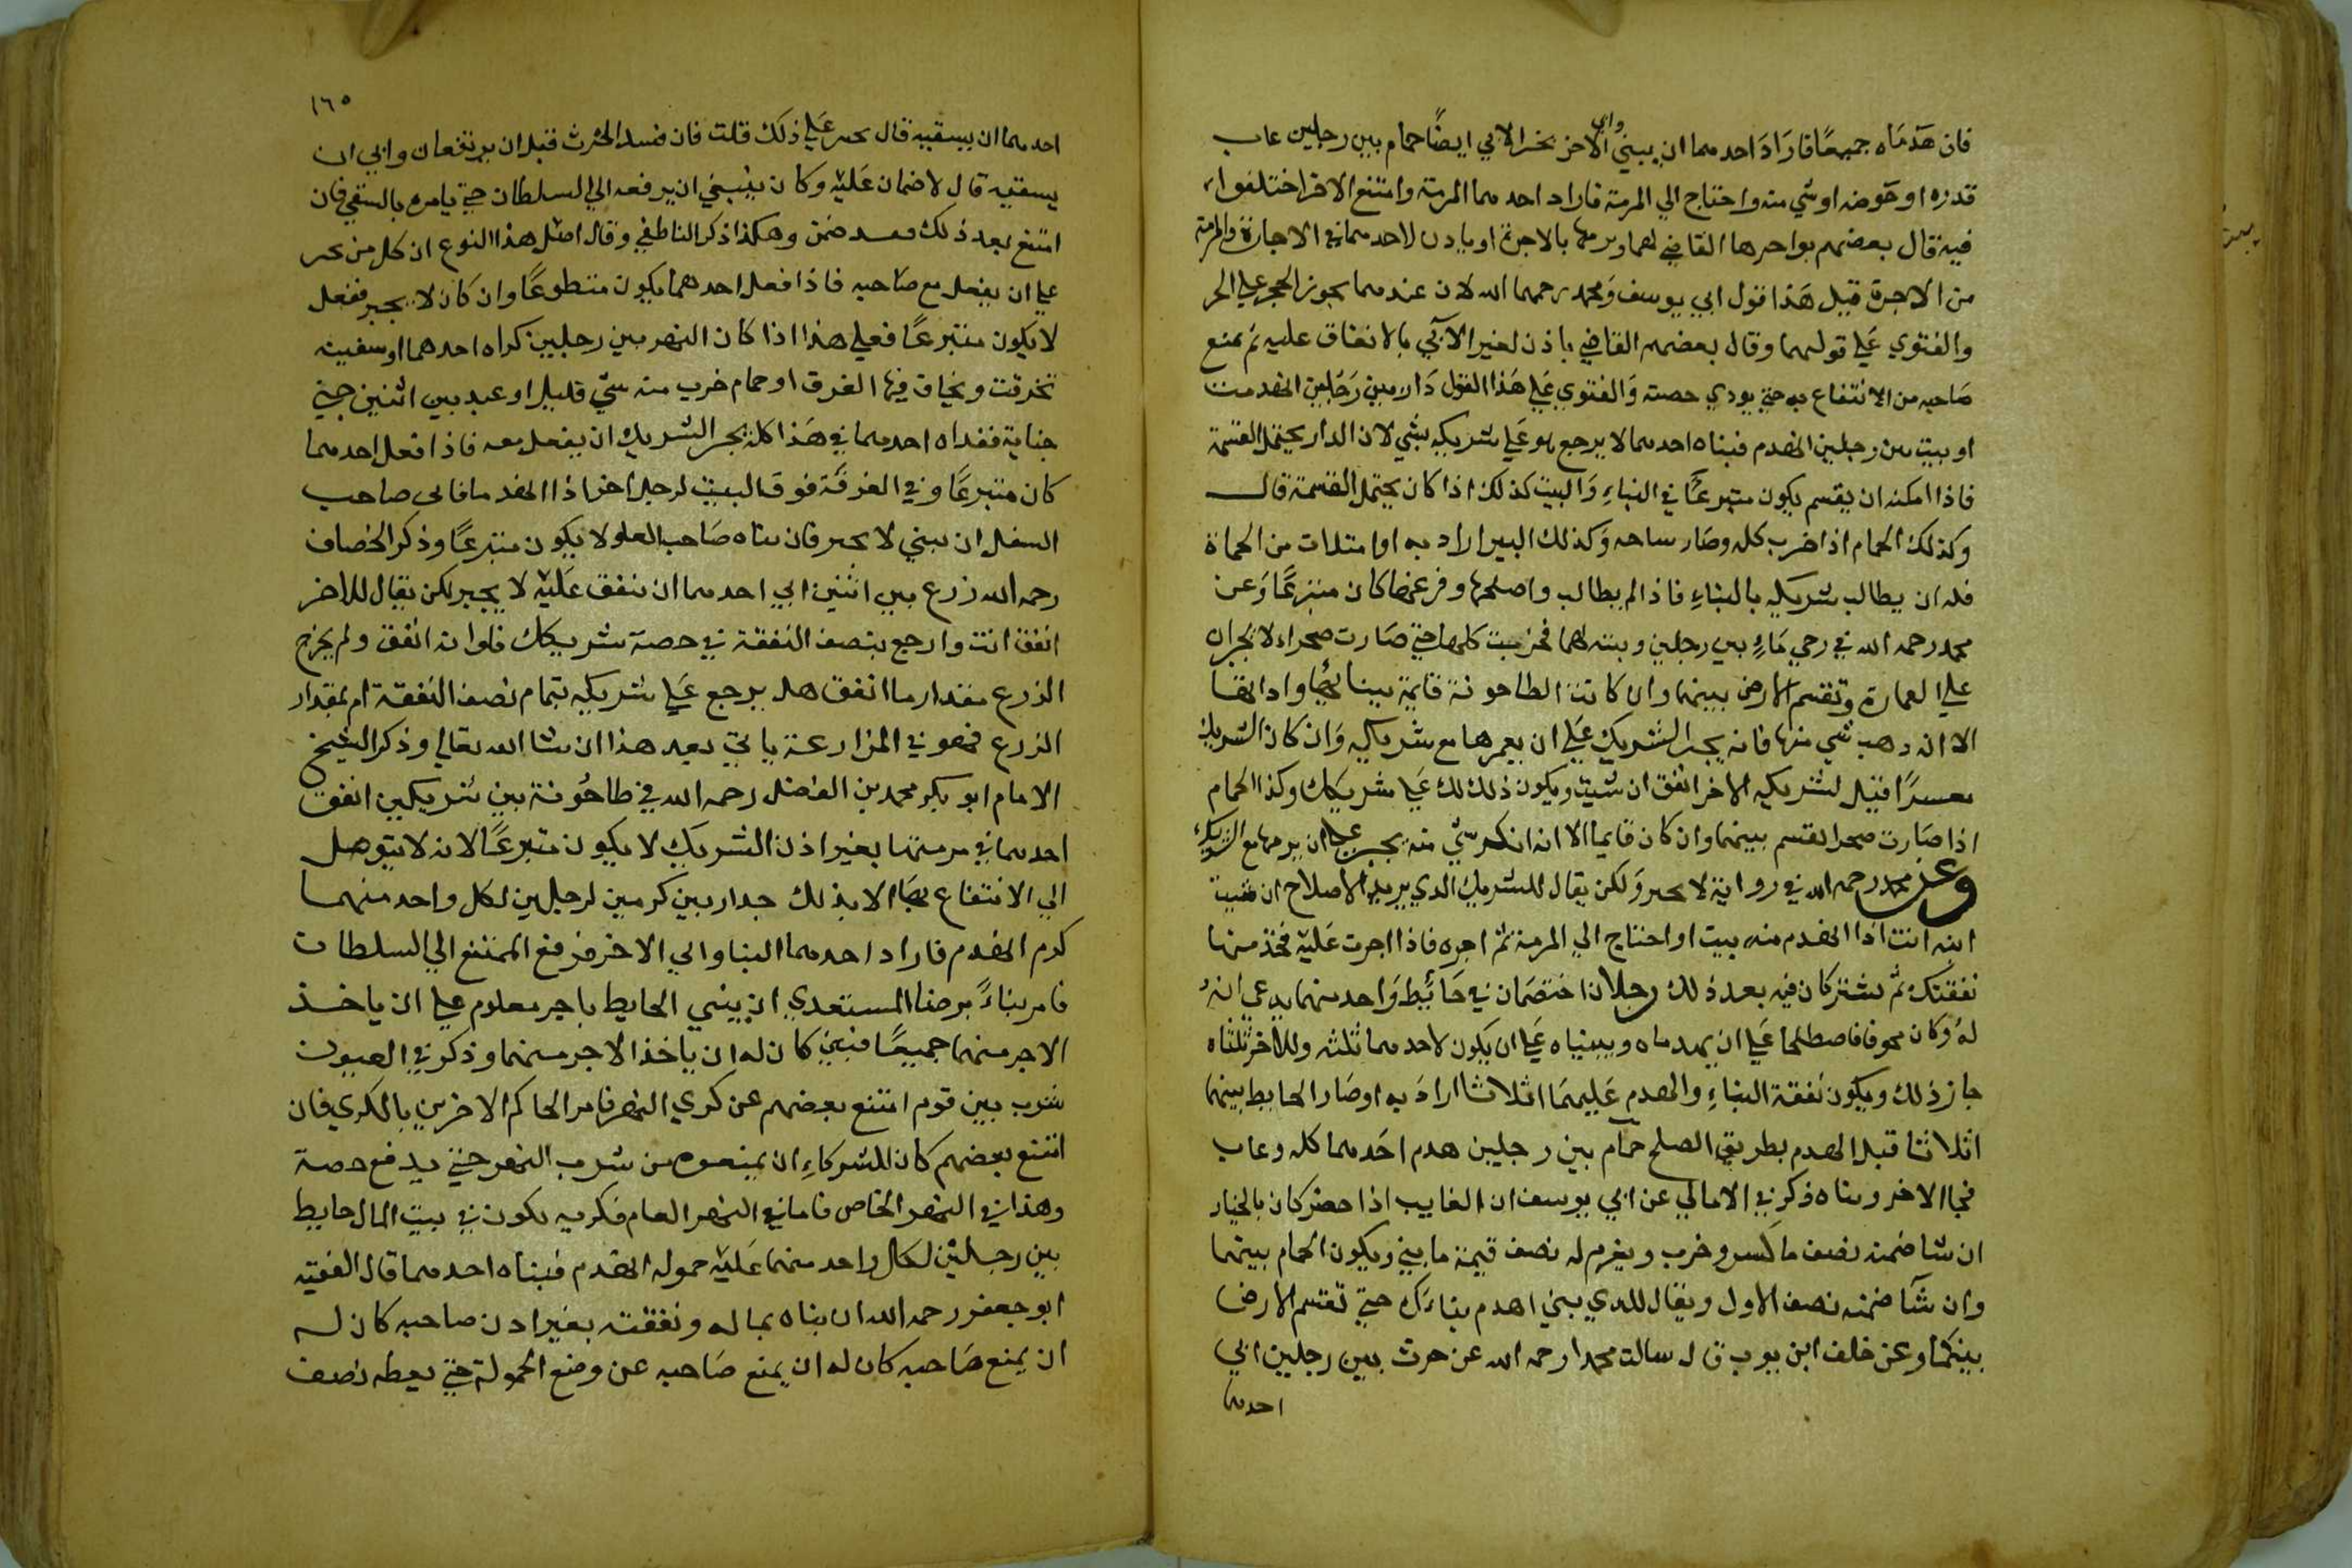 فان هدماه جميعًا فاراد احدهما ان يبني وابي الاخر يجبر الابي ايضًا حمام بين رجلين عاب
قدره او حوضه او شي منه واحتاج الي المرمة فاراد احدهما المرمة وامتنع الاخر اختلفوا
فيه قال بعضهم يواجرها القاضي لهما ويرمها بالاجرة او ياذن لاحدهما في الاجارة والمرمة
من الاجرة قيل هذا قول ابي يوسف ومحمد رحمهما الله لان عندهما يجوز الحجر علي الحر
والفتوي علي قولهما وقال بعضهم القاضي ياذن لغير الآبي بالانفاق عليه ثم يمنع
صاحبه من الانتفاع به حتي يودي حصته والفتوي علي هذا القول دار بين رجلين انهدمت
او بيت بين رجلين انهدم فبناه احدهما لا يرجع هو علي شريكه بشي لان الدار يحتمل القسمة
فاذا امكنه ان يقسم يكون متبرعًا في البناءِ والبيت كذلك اذا كان يحتمل القسمة قال
وكذلك الحمام اذا خرب كله وصار ساحه وكذلك البير اراد به اوا متلات من الحماة
فله ان يطالب شريكه بالبناءِ فاذا لم يطالب واصلحها وفرغها كان متبرعًا وعن
محمد رحمه الله في رحي ماءٍ بين رجلين وبيته لهما فخربت كلها حتي صارت صحراء لا يجبران
علي العمارة وتقسم الارض بينهما وان كانت الطاحونة قايمة ببنائها وادانها
الا ان دهب شي منها فانه يجبر الشريك علي ان يعمرها مع شريكه وان كان الشريك
معسرًا قيل لشريكه الاخر انفق ان شيت ويكون ذلك لك علي شريكك وكذا الحمام
اذا صارت صحرا تقسم بينهما وان كان قايما الا انه انكسر شي منه يجبر علي ان يرمها مع الشريك
وعن محمد رحمه الله في رواية لا يجبر ولكن يقال للشريك الدي يريد الاصلاح ان شيت
ابنه انت اذا انهدم منه بيت او احتاج الي المرمة ثم اجره فاذا اجرت عليه فخذ منها
نفقتك ثم تشتركان فيه بعد ذلك رجلان اختصمان في حائط واحد منهما يدعي انه
له وكان مخوفا فاصطلحا علي ان يهدماه ويبنياه علي ان يكون لاحدهما ثلثه وللاخر ثلثاه
جاز ذلك ويكون نفقة البناءِ والهدم عليهما اثلاثا اراد به اوصار الحايط بينهما
اثلاثا قبل الهدم بطريق الصلح حمام بين رجلين هدم احدهما كله وعاب
فجا الاخر وبناه ذكر في الامالي عن ابي يوسف ان الغايب اذا حضر كان بالخيار
ان شا ضمنه نصف ما كسر وخرب ويغرم له نصف قيمة ما بني ويكون الحمام بينهما
وان شا ضمنه نصف الاول ويقال للدي بني اهدم بناءك حتي تقسم الارض
بينكما وعن خلف ابن يوب قال سالت محمدا رحمه الله عن حرث بين رجلين ابي
احدهما
١٦٥
احدهما ان يسقيه قال يجبر علي ذلك قلت فان فسد الحرث قبل ان يرتفعان وابي ان
يسقيه قال لا ضمان عليه وكان ينبغي ان يرفعه الي السلطان حتي يامره بالسقي فان
امتنع بعد ذلك وفسد ضمن وهكذا ذكر الناطفي وقال اصل هذا النوع ان كل من يجبر
علي ان يفعل مع صاحبه فاذا فعل احدهما يكون متطوعًا وان كان لا يجبر ففعل
لا يكون متبرعًا فعلي هذا اذا كان النهر بين رجلين كراه احدهما او سفينه
تخرقت ويخاف فيها الغرق او حمام خرب منه شي قليل او عبد بين اثنين جني
جناية ففداه احدهما في هذا كله يجبر الشريك ان يفعل معه فاذا فعل احدهما
كان متبرعًا وفي الغرفة فوق البيت لرجل اخر اذا انهدما فابي صاحب
السفل ان يبني لا يجبر فان بناه صاحب العلو لا يكون متبرعًا وذكر الخصاف
رحمه الله زرع بين اثنين ابي احدهما ان ينفق عليه لا يجبر لكن يقال للاخر
انفق انت وارجع بنصف النفقة في حصة شريكك فلو انه انفق ولم يخرج
الزرع مقدار ما انفق هل يرجع علي شريكه بتمام نصف النفقة ام بمقدار
الزرع فهو في المزارعة ياتي بعد هذا ان شا الله تعالي وذكر الشيخ
الامام ابو بكر محمد بن الفضل رحمه الله في طاحونة بين شريكين انفق
احدهما في مرمتها بغير اذن الشريك لا يكون متبرعًا لانه لا يتوصل
الي الانتفاع بها الا بذلك جدار بين كرمين لرجلين لكل واحد منهما
كرم انهدم فاراد احدهما البنا وابي الاخر فرفع الممتنع الي السلطان
فامر بناءً برضا المستعدي ان يبني الحايط باجر معلوم علي ان ياخذ
الاجر منهما جميعًا فبني كان له ان ياخذ الاجر منهما وذكر في العيون
شرب بين قوم امتنع بعضهم عن كري النهر فامر الحاكم الاخرين بالكري فان
امتنع بعضهم كان للشركاءِ ان يمنعوه من شرب النهر حتي يدفع حصة
وهذا في النهر الخاص فاما في النهر العام فكريه يكون في بيت المال حايط
بين رجلين لكل واحد منهما عليه حموله انهدم فبناه احدهما قال الفقيه
ابو جعفر رحمه الله ان بناه بماله ونفقته بغير اذن صاحبه كان له
ان يمنع صاحبه كان له ان يمنع صاحبه عن وضع الحمولة حتي يعطه نصف